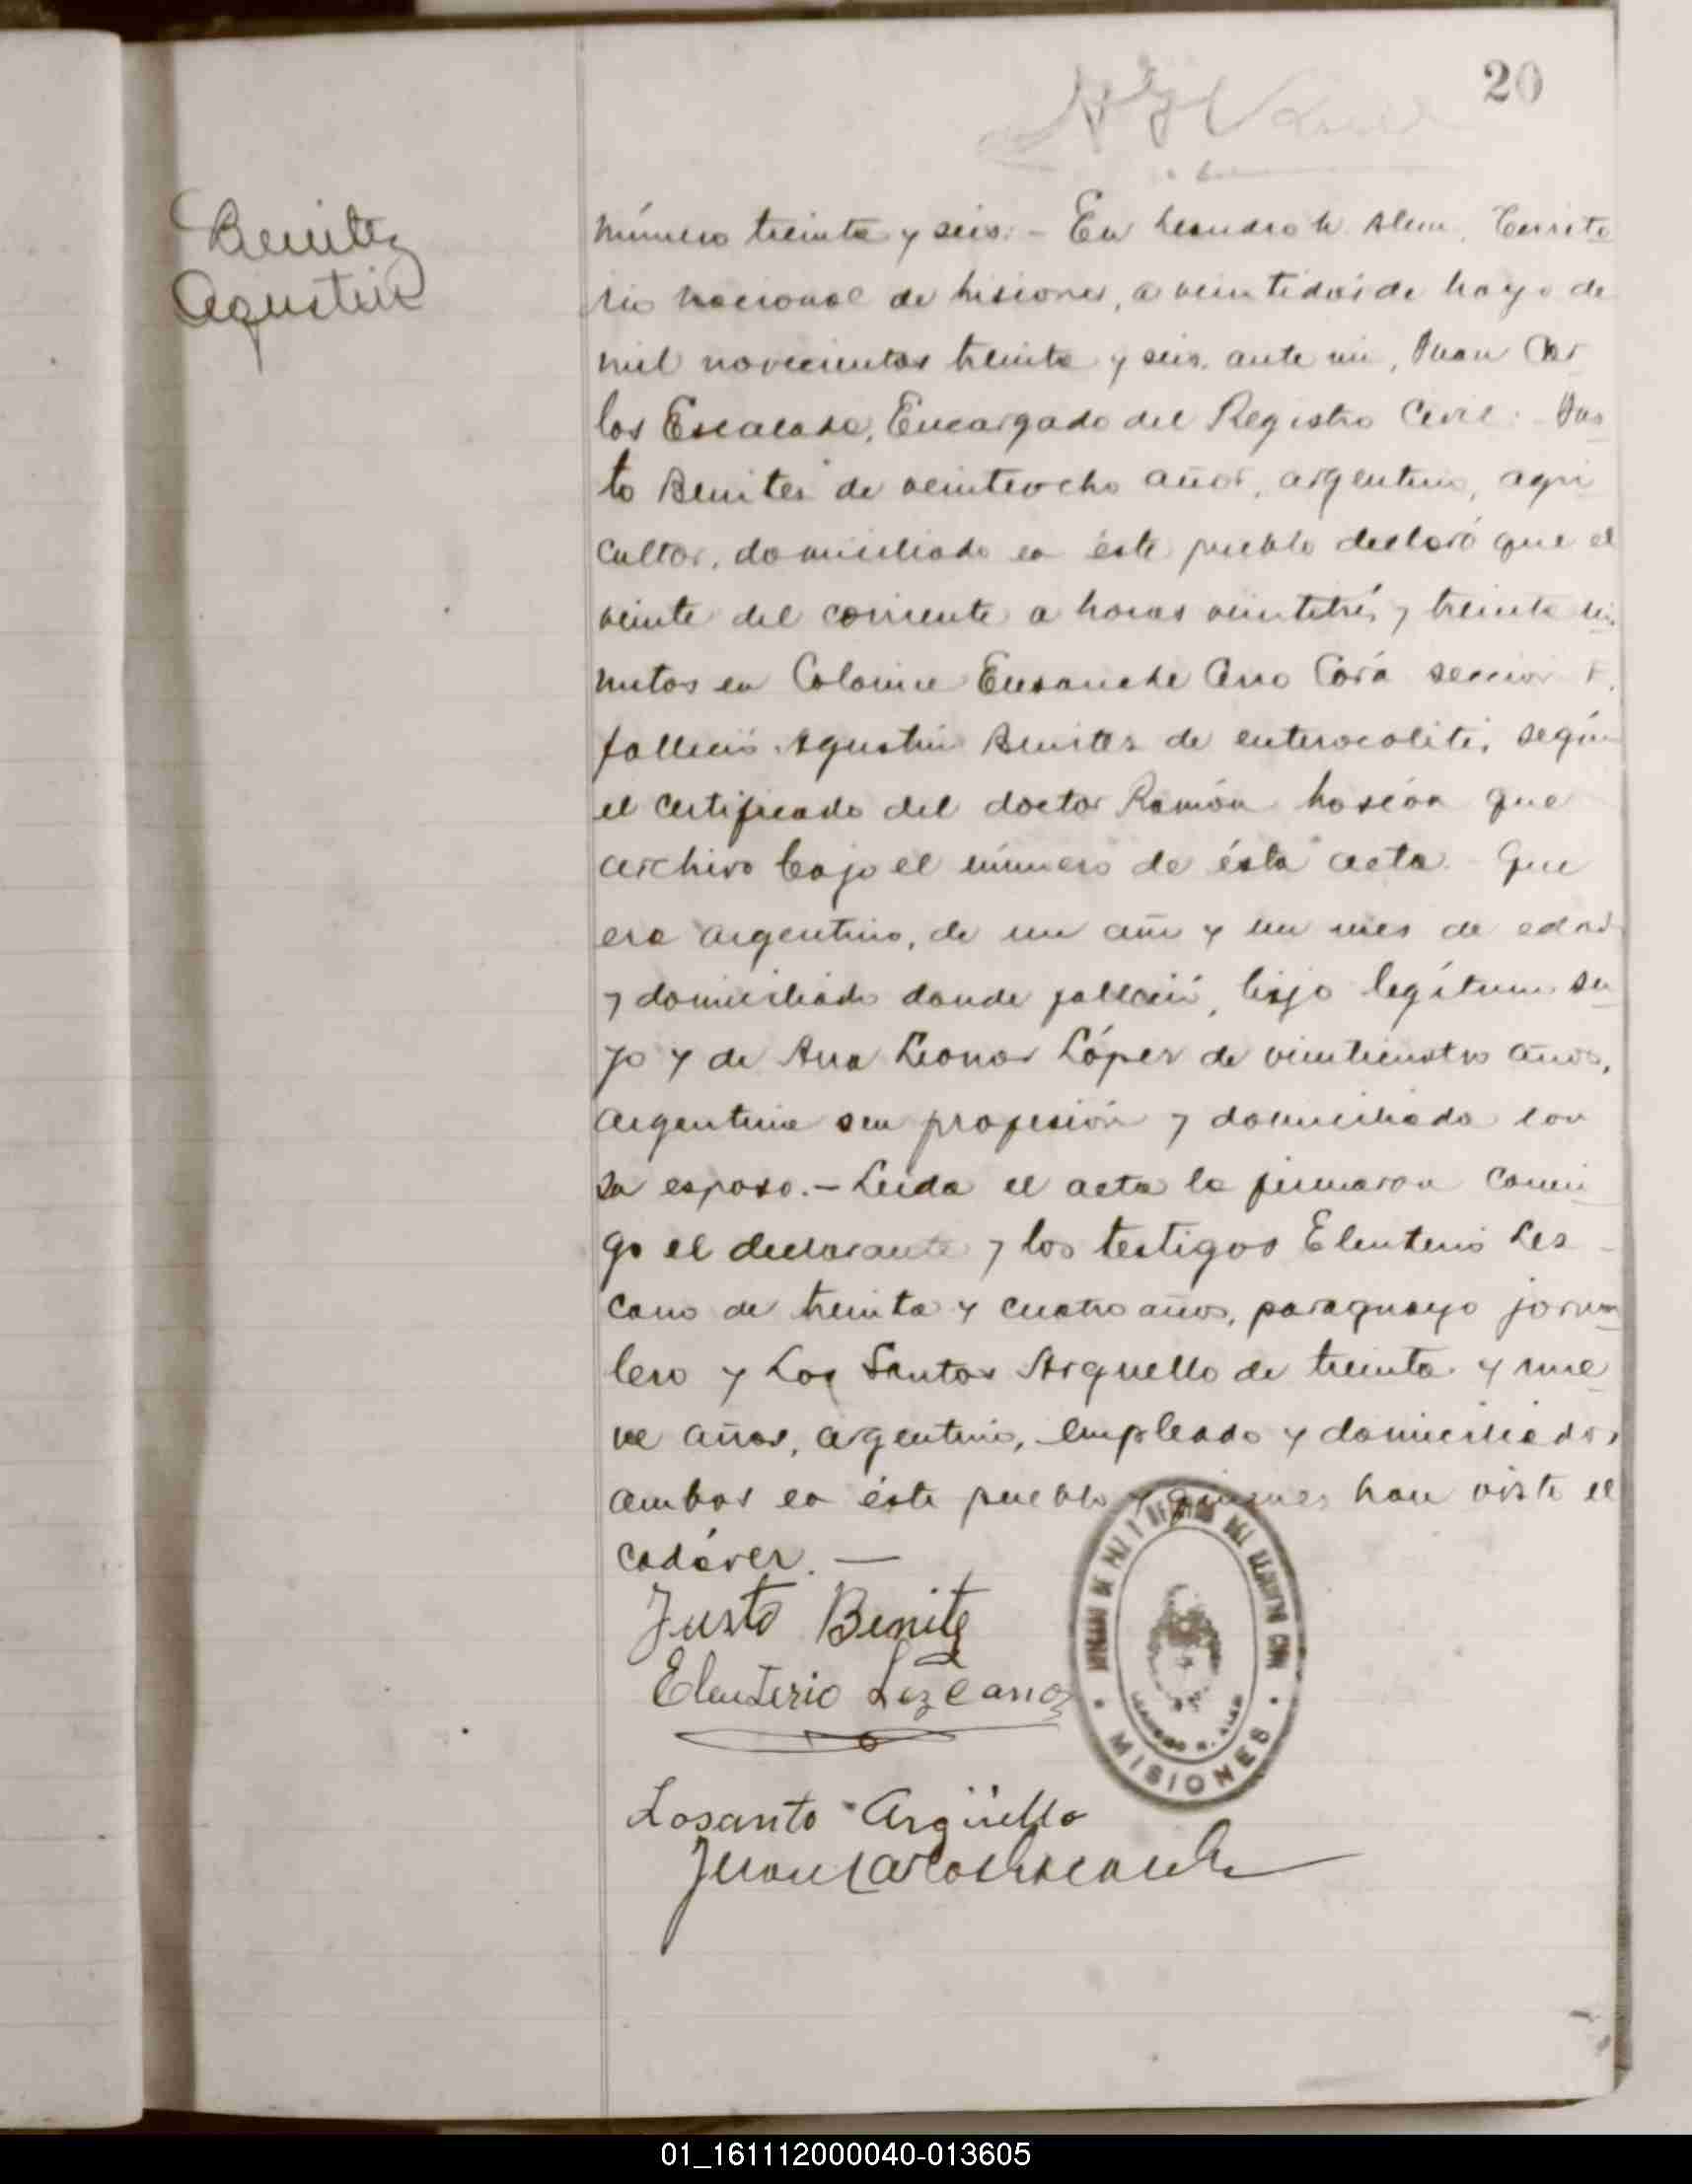 20
Benitez
Agustin
número treinta y seis.- En Leandro N. Alem, Territo
rio nacional de Misiones, a veintidós de Mayo de
mil novecientos treinta y seis, ante mi, Juan Car
los Escalada, Encargado del Registro Civil: Jus
to Benites de veinteocho años, argentino, agri
cultor, domiciliado en éste pueblo declaró que el
veinte del corriente a horas veintitrés y treinta mi
nutos en Colonia Ensanche Cerro Corá sección
falleció Agustin Benites de enterocolitis, según
el certificado del doctor Ramón que
archivo bajo el número de ésta acta.- Que
era argentino, de un año y un mes de edad
y domiciliado donde falleció, hijo legítimo su
yo y de Ana Leonor López de veinticuatro años,
argentina sin profesión y domiciliada con
su esposo.- Leida el acta la firmaron conmi
go el declarante y los testigos Eleuterio Les
cano de treinta y cuatro años, paraguayo jorna
lero y Los Santos Arguello de treinta y nue
ve años, argentino, empleado y domiciliados
ambos en éste pueblo y quienes han visto el
cadáver. —
Justo Benite
Eleuterio Lezcano
Losanto Argüello
Juan Carlos Escalada
DE PAZ Y DEL REGISTRO CIVIL
LEANDRO N. ALEM
MISIONES
01_161112000040-013605